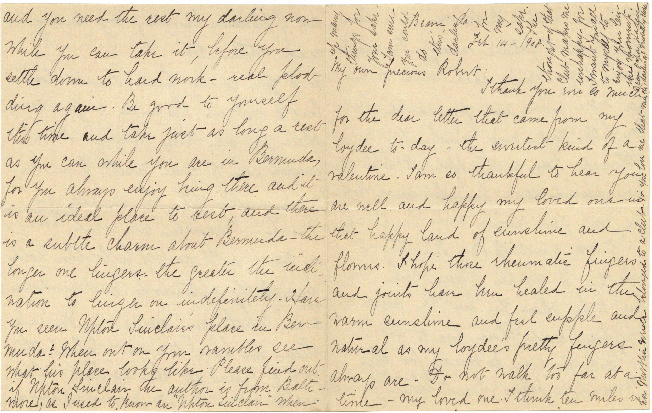 Feb. 14 - 1908.
My own precious Robert.
I thank you ever so much
for the dear letter that came from my
loydee to-day - the sweetest kind of a
valentine. I am so thankful to hear you
are well and happy my loved ones in
that happy land of sunshine and
flowers. I hope those rheumatic fingers
and joints have been healed in the
warm sunshine and feel supple and
natural as my loydee's pretty fingers
always are - Do not walk too far at a
time - my loved one. I think ten miles is
and you need the rest my darling now
while you can take it, before you
settle down to hard work - real plod-
ding again. Be good to yourself
this time and take just as long a rest
as you can while you are in Bermuda,
for you always enjoy being there and it
is an ideal place to rest, and there
is a subtle charm about Bermuda - the
longer one lingers. the greater the incli-
nation to linger on indefinitely. Have
you seen Upton Sinclair's place in Ber-
muda? When out on your rambles see
what his place looks like. Please find out
if Upton Sinclair the author is from Balti-
more, as I used to know an "Upton Sinclair" when